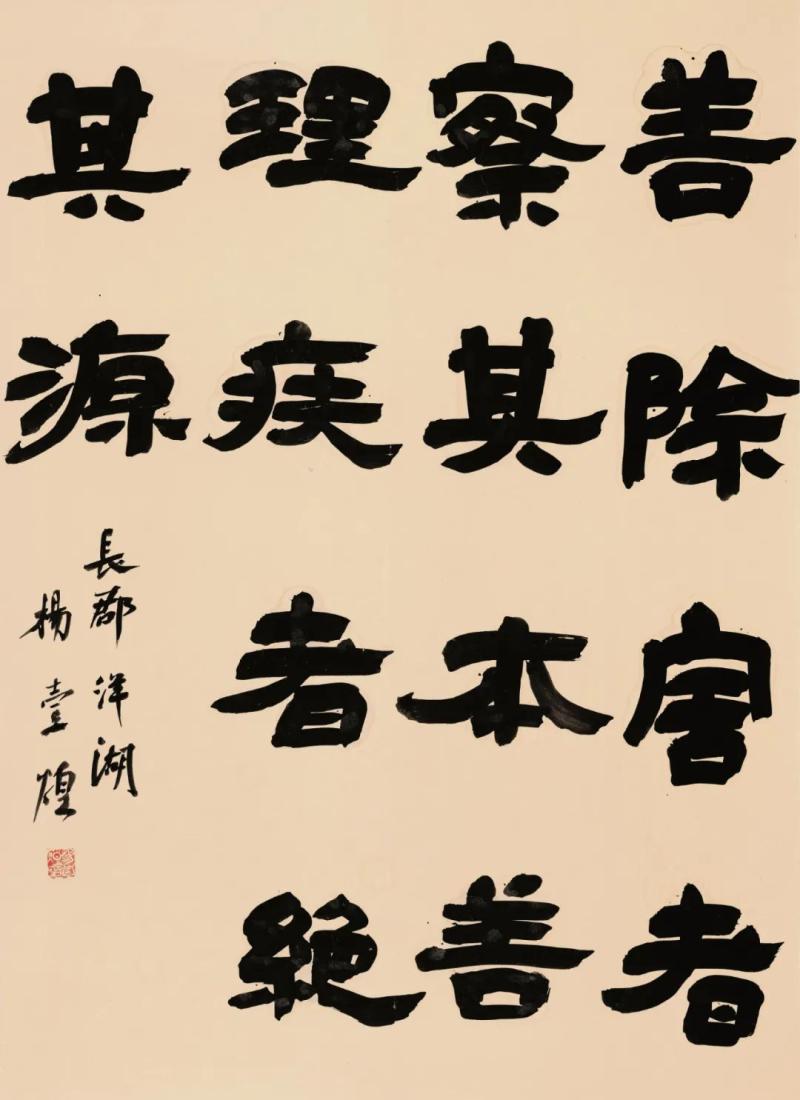 善除害者
察其本善
理疾者絶
其源
長郡洋湖
楊壹煌